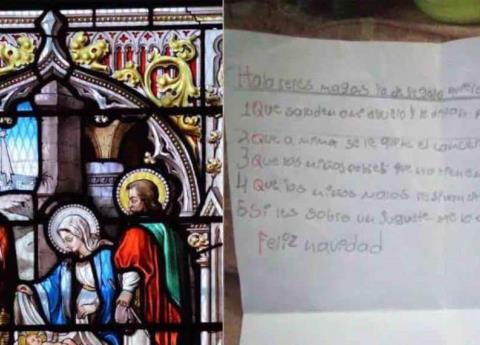 Hola reyes magos yo de regalo
1 Que saluden a mi abuelo y le digan
2 Que a mi mama se le quite el
3 Que los niños pobres que no tienen
4 Que los niños malos
5 Si les sobro un juguete me lo
Feliz navidad